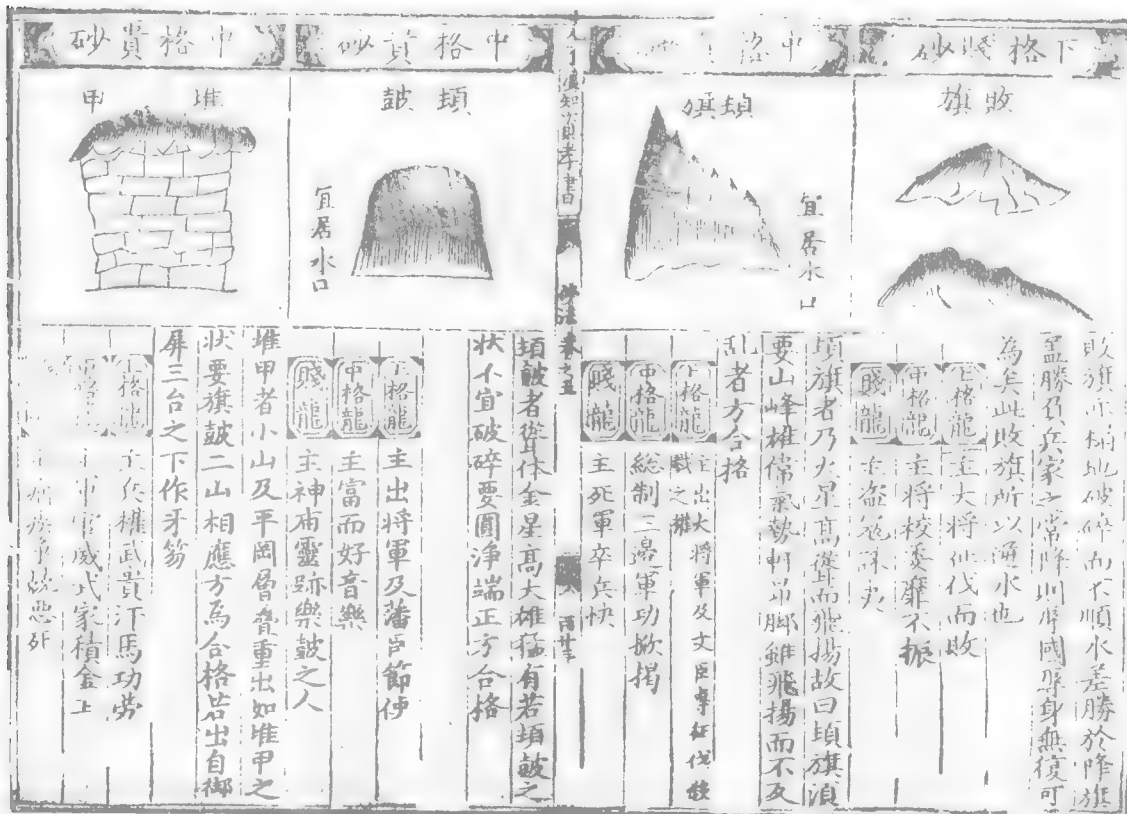 下格賤砂
敗旗
敗旗亦橫地破碎而不順水差勝於降旗
盖勝負兵家之常降則辱國辱身無復可
為矣此敗旗所以逆水也
上格龍 主大將征伐而敗
中格龍 主將校委靡不振
賤龍 主盜
中格砂
頓旗
宜居水口
頓旗者乃火星高聳而飛揚故曰頓旗湏
要山峰雄偉氣勢軒昂脚雖飛揚而不反
乱者方合格
上格龍 主出大將軍及文臣專征伐
戮之權
中格龍 總制三邊軍功掀揭
賤龍 主死軍卒兵快
人子須知資孝書
砂法 卷之五
中格貴砂
頓鼓
宜居水口
頓皷者從身体金星高大雄猛有若頓皷之
状不宜破碎要圓淨端正方合格
上格龍 主出將軍及藩臣節使
中格龍 主富而好音樂
賤龍 主神庙靈跡樂皷之人
中格貴砂
堆甲
堆甲者小山及平岡疊疊重出如堆甲之
状要旗皷二山相應方爲合格若出自御
屏三台之下作牙笏
上格龍 主兵權武貴汗馬功勞
威武家積金
惡死